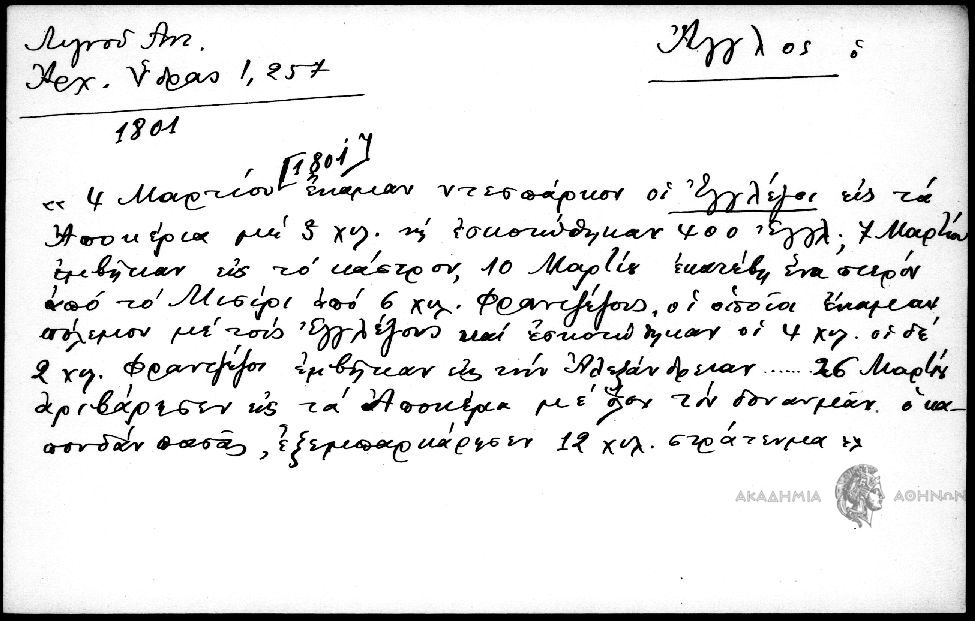 Λιγνοῦ Ἀντ.
Ἀρχ. Ὕδρας 1, 257
Ἄγγλος ὁ
1801
[1801]
«4 Μαρτίου ἔκαμαν ντεσπάρκον οἱ Ἐγγλέζοι εἰς τὰ
Ἀποκέρια μὲ 5 χιλ. κὴ ἐσκοτώθηκαν 400 Ἐγγλ.; 7 Μαρτίου
ἐμβῆκαν εἰς τὸ κάστρον, 10 Μαρτίου ἐκατέβη ἕνα
ἀπὸ τὸ Μισίρι ἀπὸ 6 χιλ. Φραντζέζους, οἱ ὁποῖοι ἔκαμαν
πόλεμον μὲ τοὺς Ἐγγλέζους καὶ ἐσκοτώθηκαν οἱ 4 χιλ. οἱ δὲ
2 χιλ. Φραντζέζοι ἐμβῆκαν εἰς τὴν Ἀλεξάνδρειαν ...... 26 Μαρτίου
ἀριβάρεσεν εἰς τὰ Ἀποκέρια μὲ ὅλον τὸν δονανμᾶν ὁ κα-
πουδὰν πασᾶς, ἐξεμπαρκάρησεν 12 χιλ. στράτευμα
ΑΚΑΔΗΜΙΑ ΑΘΗΝΩΝ